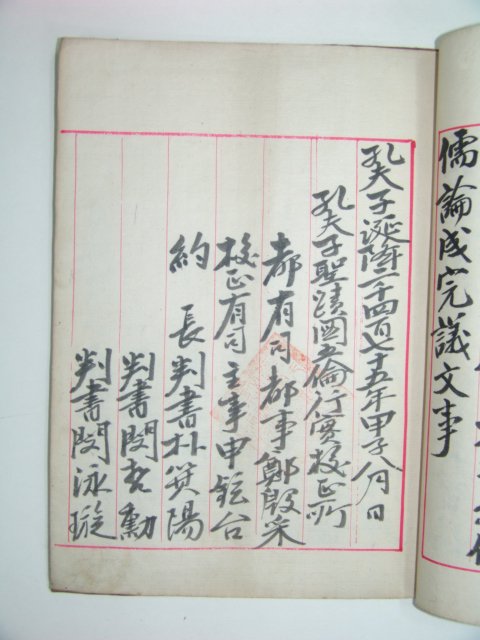 儒論成完議文事
孔夫子誕降二千四百七十五年甲子八月 日
孔夫子聖蹟圖五倫行實校正所
都有司都事鄭殷采
校正有司主事申鉉台
約 長判書朴箕陽
判書閔 勳
判書閔泳璇